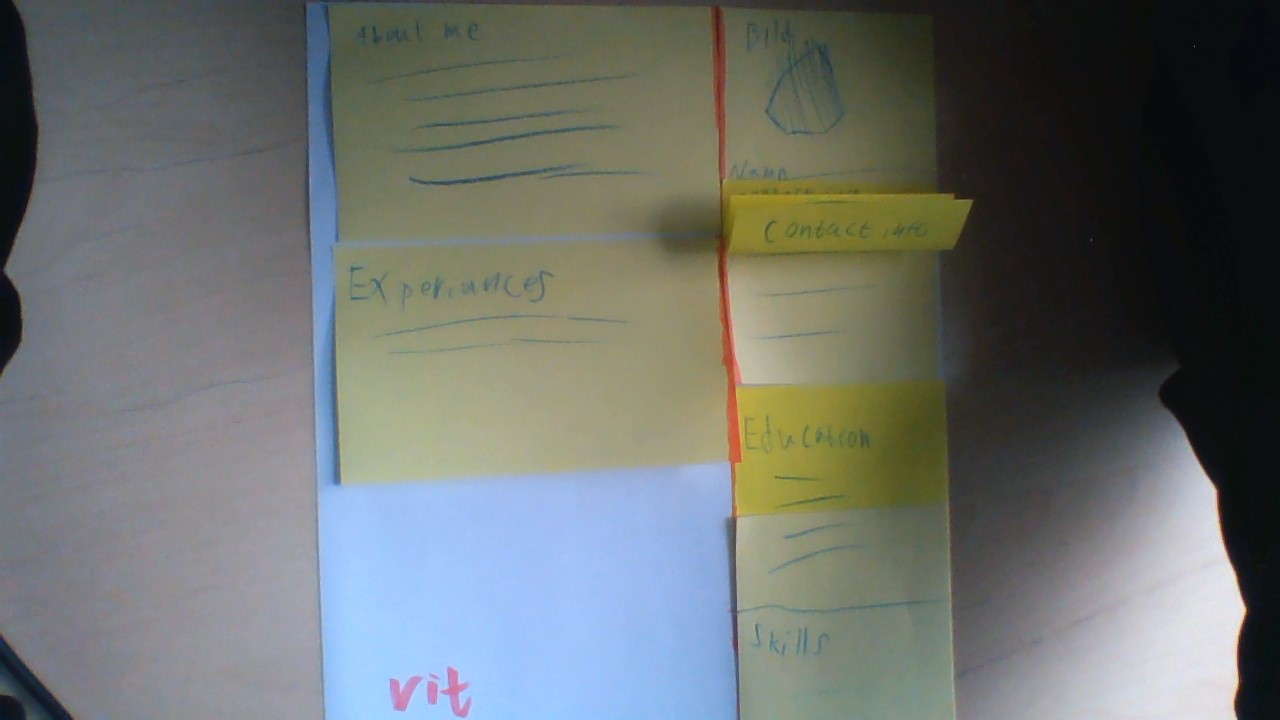 About me
Experiances
vit
Bild
Namn
Contact info
Education
Skills